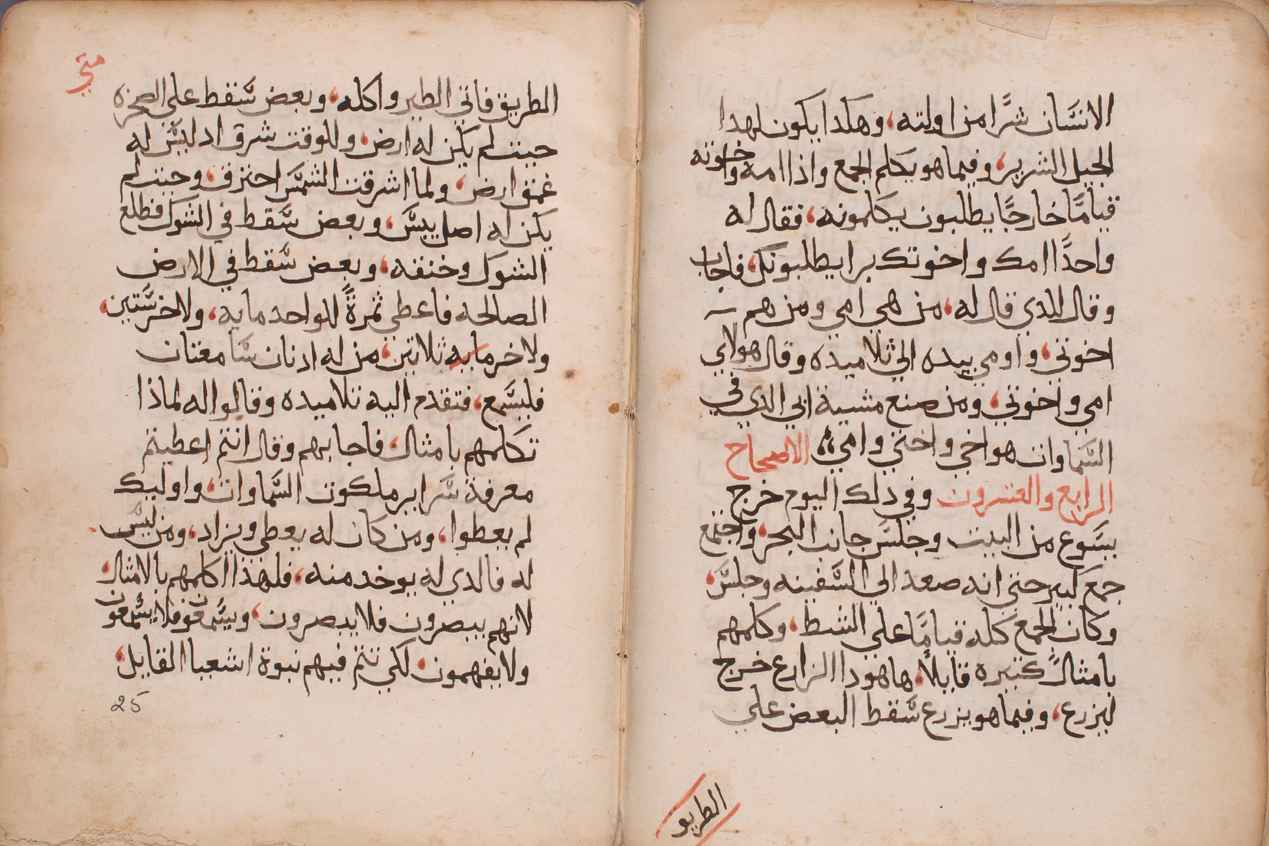 الانسَّان شرًّا من اولته، وهكدا يكون لهدا
الجيل الشرير، وفيما هو يكلم الجمع واذا امه واخوته
قيامًا خارجًا يطلبون يكلمونه، فقال له
واحدًا امك واخوتك برا يطلبونك، فاجاب
وقال للدي قال له، من هي امي ومن هم
اخوتي، واومي بيده الي تلاميده وقال هولاي
امي واخوتي، ومن صنع مشية ابي الدي في
السَّماوات هو اخي واختي وامي الاصحاح
الرابع والعشرون وفي دلك اليوم خرج
يسَّوع من البيت وجلسَ جانب البحر، واجتمع
جمع كبير حتي انه صعد الي السَّفينه وجلسَّ،
وكان الجمع كله قيامًا علي الشط، وكلمهم
بامثال كتيره قايلاً، ها هودا الزارع خرج
ليزرع، وفيما هو يزرع سَّقط البعض علي
الطريق
متي
الطريق فاتي الطير واكله، وبعض سَّقط علي الصخره
حيت لم يكن له ارض، وللوقت شرق اد ليسَّ له
عمق ارض، ولما اشرقت الشمسَّ احترق، وحيت لم
يكن له اصل يبسَّ، وبعض سَّقط في الشوك فطلع
الشوك وخنقه، وبعض سَّقط في الارض
الصالحه فاعطي ثمرةً للواحد مايه، ولاخر سَّتين،
ولاخر مايه ثلاتين، من له ادنان سَّامعتان
فليسَّمع، فتقدم اليه تلاميده وقالوا له لماذا
تكلمهم بامثال، فاجابهم وقال انتم اعطيتم
معرفة سَّراير ملكوت السَّماوات، واوليك
لم يعطوا، ومن كان له يعطي ويزاد، ومن ليسَّ
له فالدي له يوخد منه، فلهذا اكلمهم بالامثال،
لانهم يبصرون فلا يبصرون، ويسَّمعون فلا يسَّمعون
ولا يفهمون، لكي تتم فيهم نبوة اشعيا القايل،
25